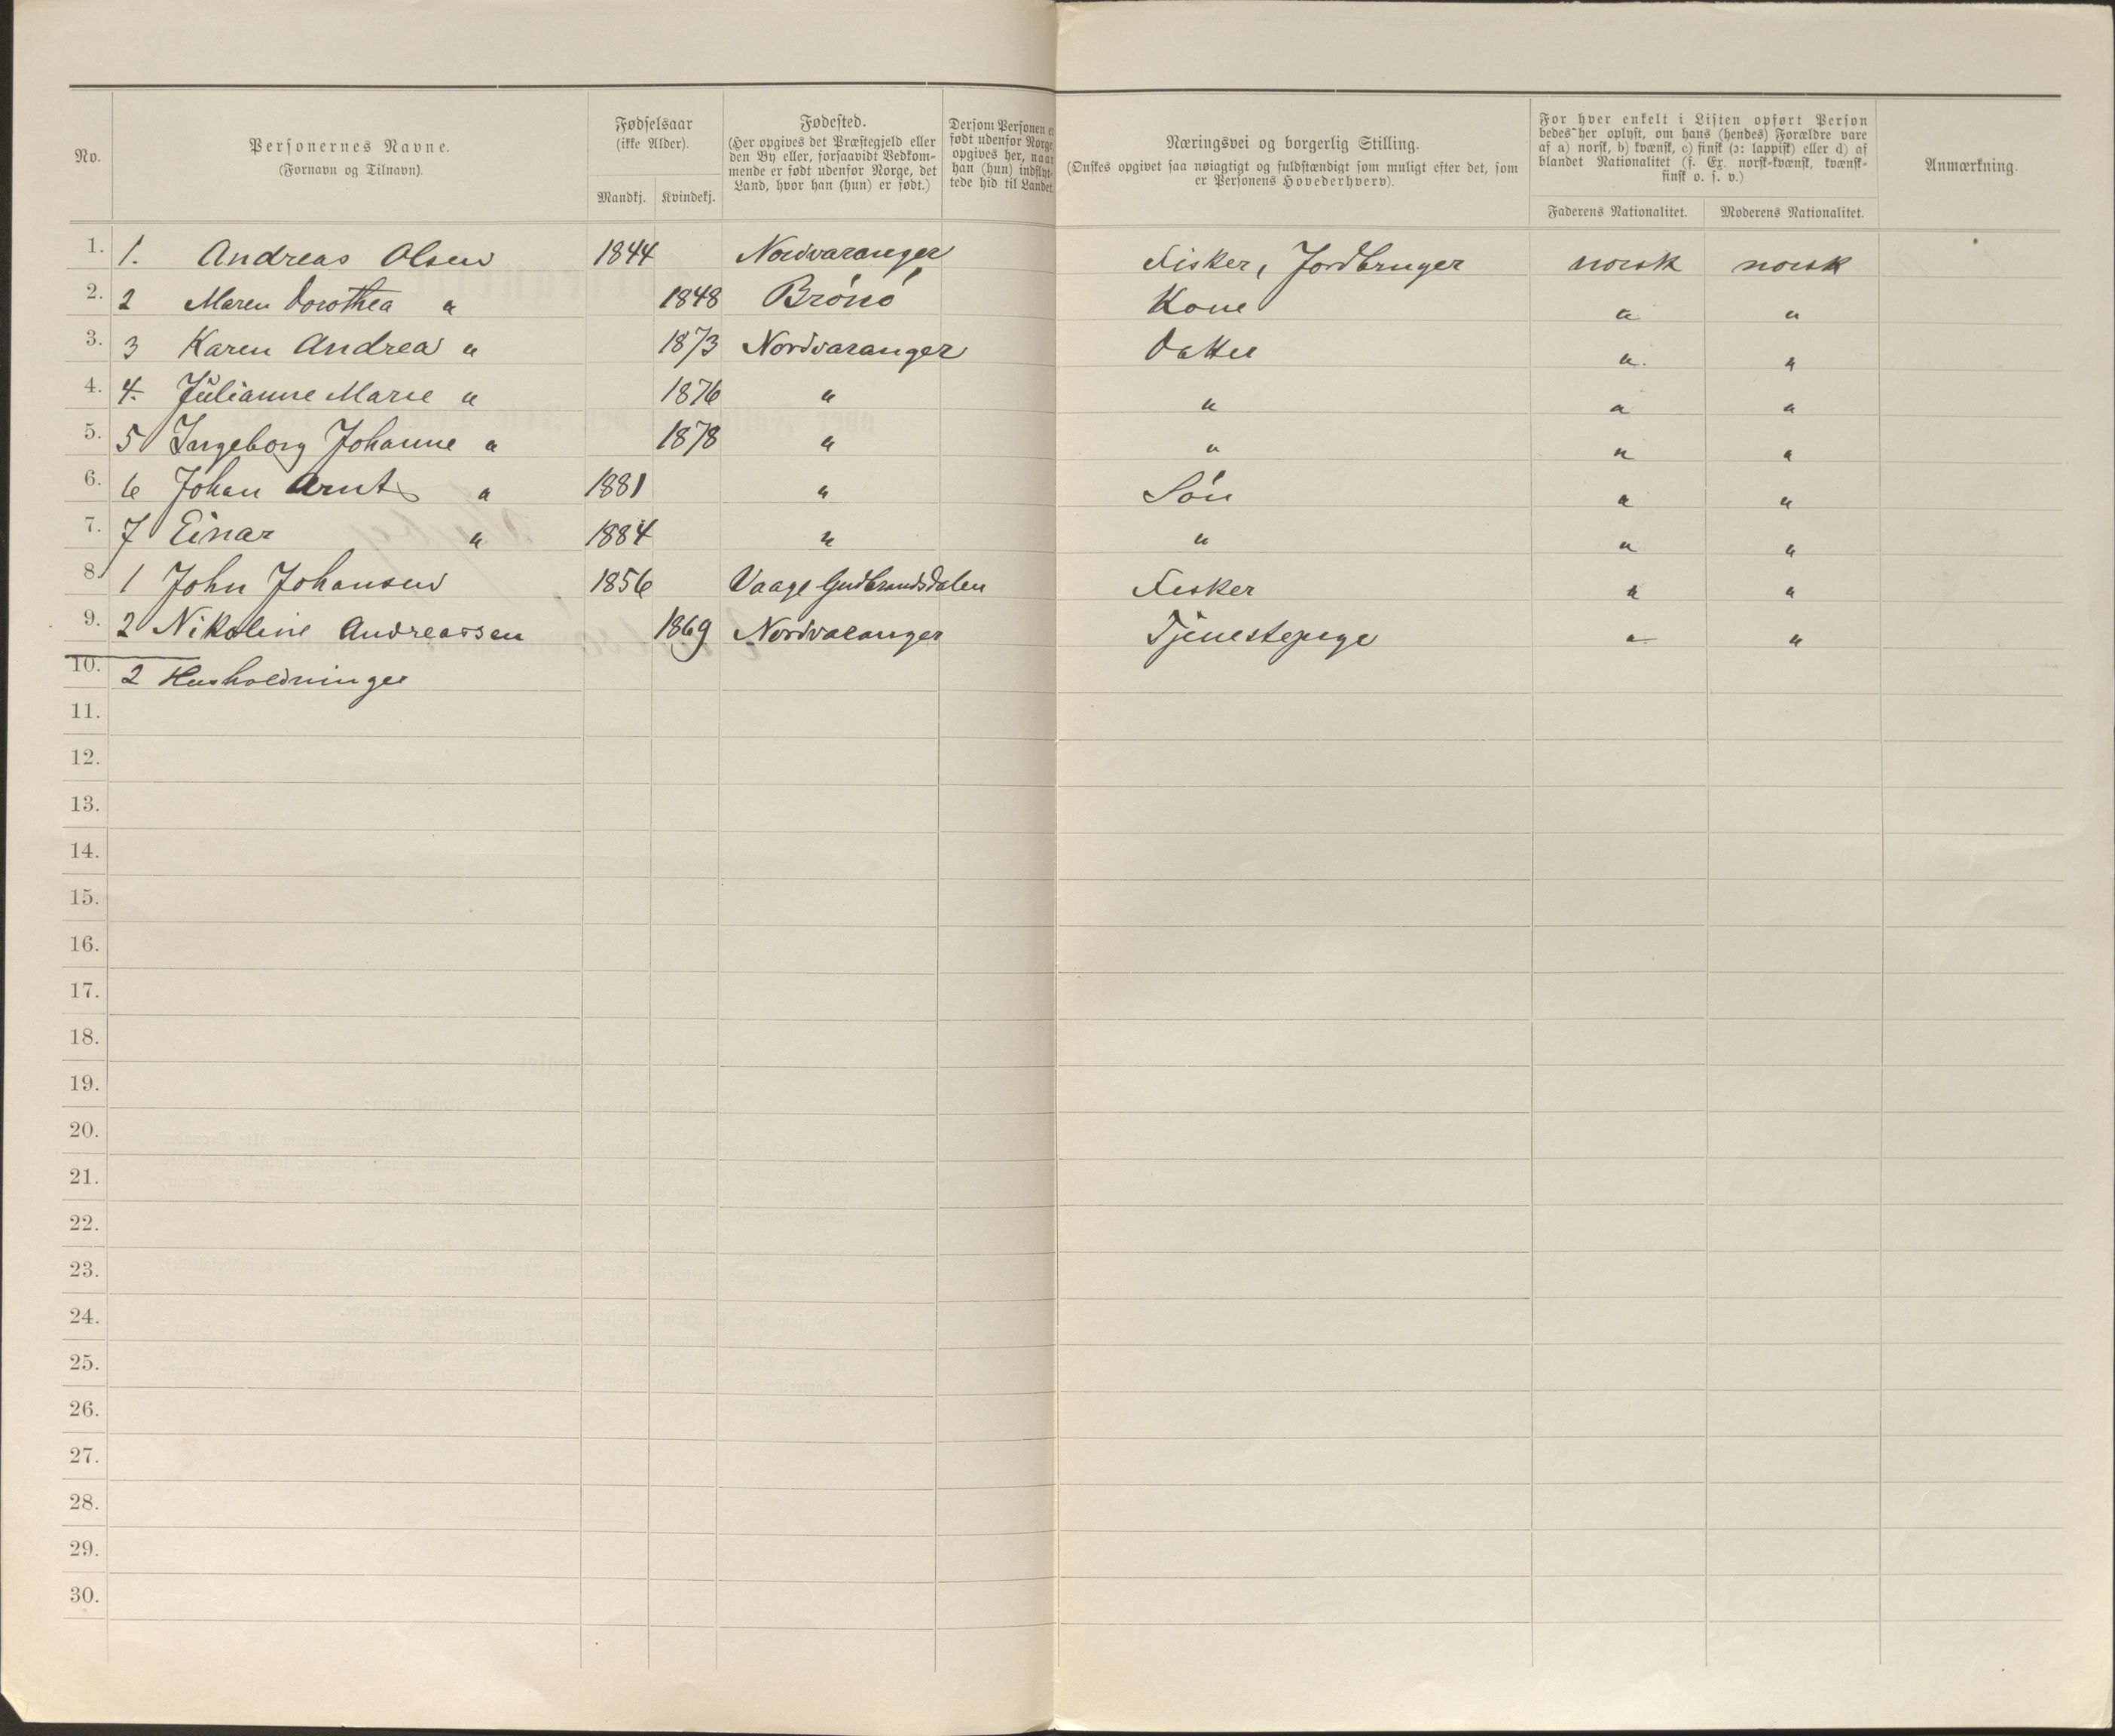 No.
Personernes Navne.
(Fornavn og Tilnavn).
Fødselsaar
(ikke Alder).
Mandkj. Kvindekj.
Fødested.
(Her opgives det Præstegjeld eller
den By eller, forsaavidt Vedkom-
mende er født udenfor Norge, det
Land, hvor han (hun) er født.)
Dersom Personen er
født udenfor Norge,
opgives her, naar
han (hun) indflyt-
tede hid til Landet.
Næringsvei og borgerlig Stilling.
(Ønskes opgivet saa nøiagtigt og fuldstændigt som muligt efter det, som
er Personens Hovederhverv).
For hver enkelt i Listen opført Person
bedes her oplyst, om hans (hendes) Forældre vare
af a) norsk, b) kvænsk, c) finsk (ɔ: lappisk) eller d) af
blandet Nationalitet (f. Ex. norsk-kvænsk, kvænsk-
finsk o. s. v.)
Faderens Nationalitet. Moderens Nationalitet.
Anmærkning.
1. 1. Andreas Olsen 1844 Nordvaranger Fisker, Jordbruger norsk norsk
2. 2 Maren Dorothea " 1848 Brönö Kone " "
3. 3 Karen Andrea " 1873 Nordvaranger Datter " "
4. 4. Julianne Marie " 1876 " " " "
5. 5 Ingeborg Johanne " 1878 " " " "
6. 6 Johan Arnt " 1881 " Sön " "
7. 7 Einar " 1884 " " " "
8. 1 John Johansen 1856 Vaage Gudbrandsdalen Fisker " "
9. 2 Nikoline Andreassen 1869 Nordvaranger Tjenestepige " "
10. 2 Husholdninger
11.
12.
13.
14.
15.
16.
17.
18.
19.
20.
21.
22.
23.
24.
25.
26.
27.
28.
29.
30.